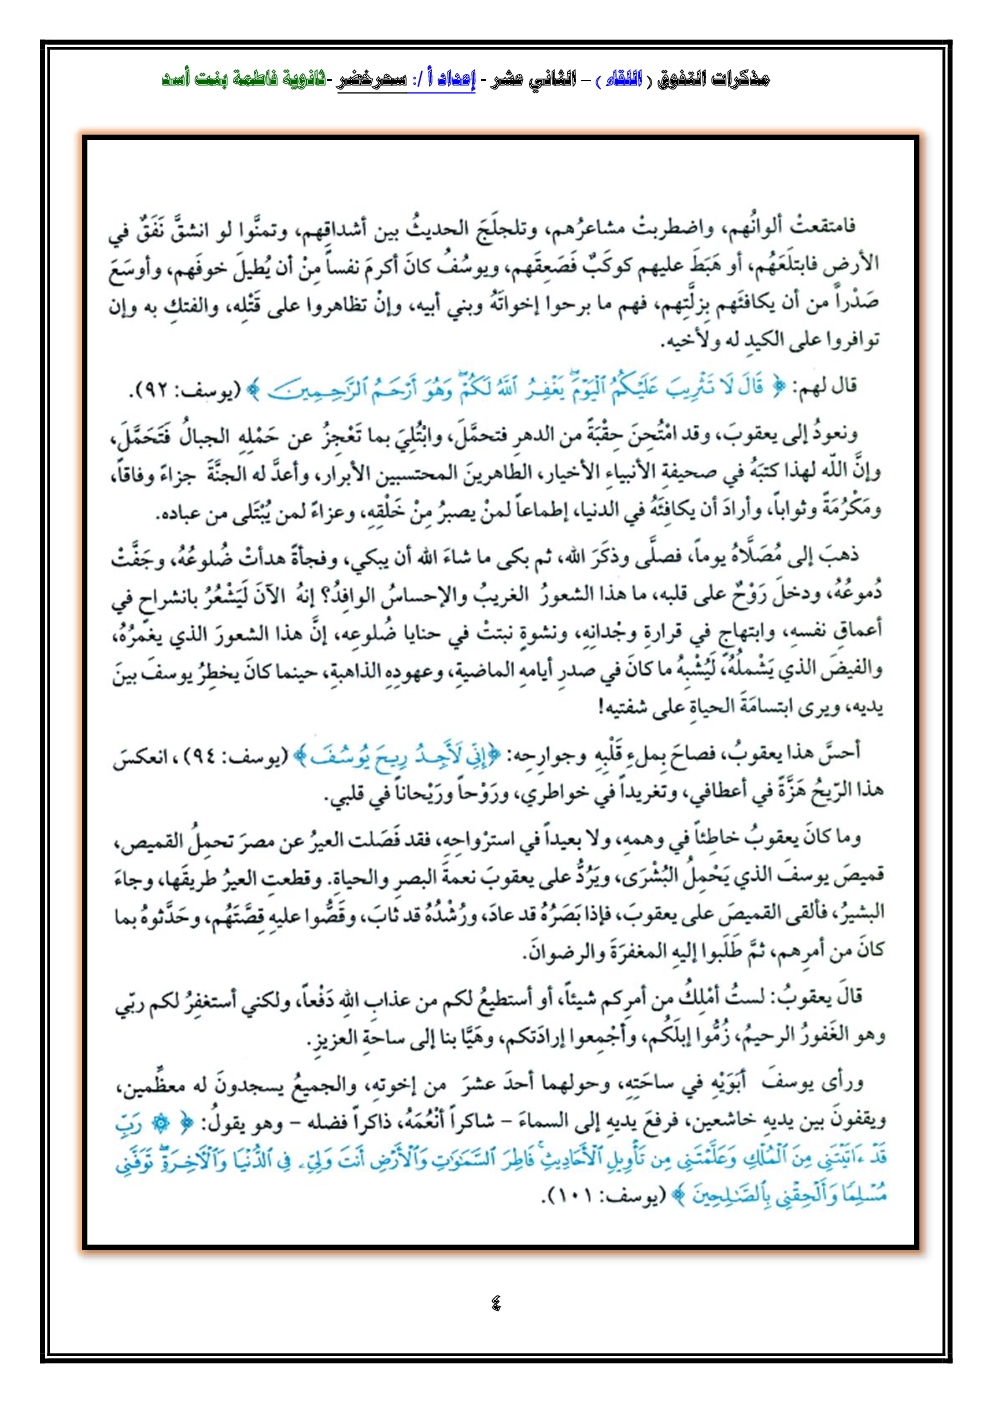 مذكرات التفوق ( اللقاء ) – الثاني عشر - إعداد أ /: سحرخضر -ثانوية فاطمة بنت أسد
فامتقعتْ ألوانُهم، واضطربتْ مشاعرُهم، وتلجلَجَ الحديثُ بين أشداقِهم، وتمنَّوا لو انشقَّ نَفَقٌ في
الأرضِ فابتلَعَهُم، أو هَبَطَ عليهم كوكَبٌ فَصَعِقَهم، ويوسُفُ كانَ أكرمَ نفساً مِنْ أن يُطيلَ خوفَهم، وأوسَعَ
صَدْراً من أن يكافئَهم بِزلَّتِهم، فهم ما برحوا إخوانَهُ وبني أبيه، وإنْ تظاهروا على قَتْلِه، والفتكِ به وإن
توافروا على الكيدِ له ولأخيه.
قال لهم: ﴿ قَالَ لَا تَثْرِيبَ عَلَيْكُمُ ٱلْيَوْمَۖ يَغْفِرُ ٱللَّهُ لَكُمْۖ وَهُوَ أَرْحَمُ ٱلرَّٰحِمِينَ ﴾ (يوسف: ٩٢).
ونعودُ إلى يعقوبَ، وقد امْتُحِنَ حِقْبَةً من الدهرِ فتحمَّلَ، وابْتُلِيَ بما تَعْجِزُ عن حَمْلِهِ الجبالُ فَتَحَمَّلَ،
وإنَّ اللّه لهذا كتبَهُ في صحيفةِ الأنبياءِ الأخيار، الطاهرينَ المحتسبين الأبرار، وأعدَّ له الجنَّةَ جزاءً وفاقاً،
ومَكْرُمَةً وثواباً، وأرادَ أن يكافِئَهُ في الدنيا، إطماعاً لمنْ يصبرُ مِنْ خَلْقِهِ، وعزاءً لمن يُبْتَلى من عباده.
ذهبَ إلى مُصَلَّاهُ يوماً، فصلَّى وذكَرَ الله، ثم بكى ما شاءَ الله أن يبكي، وفجأةً هدأتْ ضُلوعُهُ، وجَفَّتْ
دُموعُهُ، ودخلَ رَوْحٌ على قلبه، ما هذا الشعورُ الغريبُ والإحساسُ الوافِدُ؟ إنهُ الآنَ لَيَشْعُرُ بانشراحٍ في
أعماقِ نفسهِ، وابتهاجٍ في قرارةِ وجْدانِهِ، ونشوةٍ نبتتْ في حنايا ضُلوعِه، إنَّ هذا الشعورَ الذي يغمرُهُ،
والفيضَ الذي يَشْملُهُ، لَيُشْبِهُ ما كانَ في صدرِ أيامهِ الماضيةِ، وعهودِهِ الذاهبةِ، حينما كانَ يخطِرُ يوسفَ بينَ
يديه، ويرى ابتسامَةَ الحياةِ على شفتيه!
أحسَّ هذا يعقوبُ، فصاحَ بِملءِ قَلْبِهِ وجوارحِه: ﴿إِنِّي لَأَجِدُ رِيحَ يُوسُفَ﴾ (يوسف: ٩٤) ، انعكسَ
هذا الرّيحُ هَزَّةً في أعطافي، وتغريداً في خواطري، ورَوْحاً ورَيْحاناً في قلبي.
وما كانَ يعقوبُ خاطِئاً في وهمهِ، ولا بعيداً في استرْواحِهِ، فقد فَصَلت العيرُ عن مصرَ تحمِلُ القميص،
قميصَ يوسفَ الذي يَحْمِلُ البُشْرَى، ويَرُدُّ على يعقوبَ نعمةَ البصرِ والحياةِ. وقطعتِ العيرُ طريقَها، وجاءَ
البشيرُ، فألقى القميصَ على يعقوبَ، فإذا بَصَرُهُ قد عادَ، ورُشْدُهُ قد ثابَ، وقَصُّوا عليهِ قِصَّتَهُم، وحَدَّثوهُ بما
كانَ من أمرِهم، ثمَّ طَلَبوا إليهِ المغفرَةَ والرضوانَ.
قالَ يعقوبُ: لستُ أمْلِكُ من أمرِكم شيئاً، أو أستطيعُ لكم من عذابِ اللهِ دَفْعاً، ولكني أستغفِرُ لكم ربّي
وهو الغَفورُ الرحيمُ، زُمُّوا إبلَكُم، وأجْمِعوا إرادَتكم، وهَيَّا بنا إلى ساحةِ العزيزِ.
ورأى يوسفَ أبَوَيْهِ في ساحَتِهِ، وحولهما أحدَ عشرَ من إخوتهِ، والجميعُ يسجدونَ له معظِّمين،
ويقفونَ بين يديهِ خاشعين، فرفعَ يديهِ إلى السماءَ – شاكراً أنْعُمَهُ، ذاكراً فضله – وهو يقولُ: ﴿ ۞ رَبِّ
قَدْ ءَاتَيْتَنِي مِنَ ٱلْمُلْكِ وَعَلَّمْتَنِي مِن تَأْوِيلِ ٱلْأَحَادِيثِۚ فَاطِرَ ٱلسَّمَٰوَٰتِ وَٱلْأَرْضِ أَنتَ وَلِيِّۦ فِي ٱلدُّنْيَا وَٱلْأَخِرَةِۖ تَوَفَّنِي
مُسْلِمًا وَأَلْحِقْنِي بِٱلصَّٰلِحِينَ ﴾ (يوسف: ١٠١).
٤